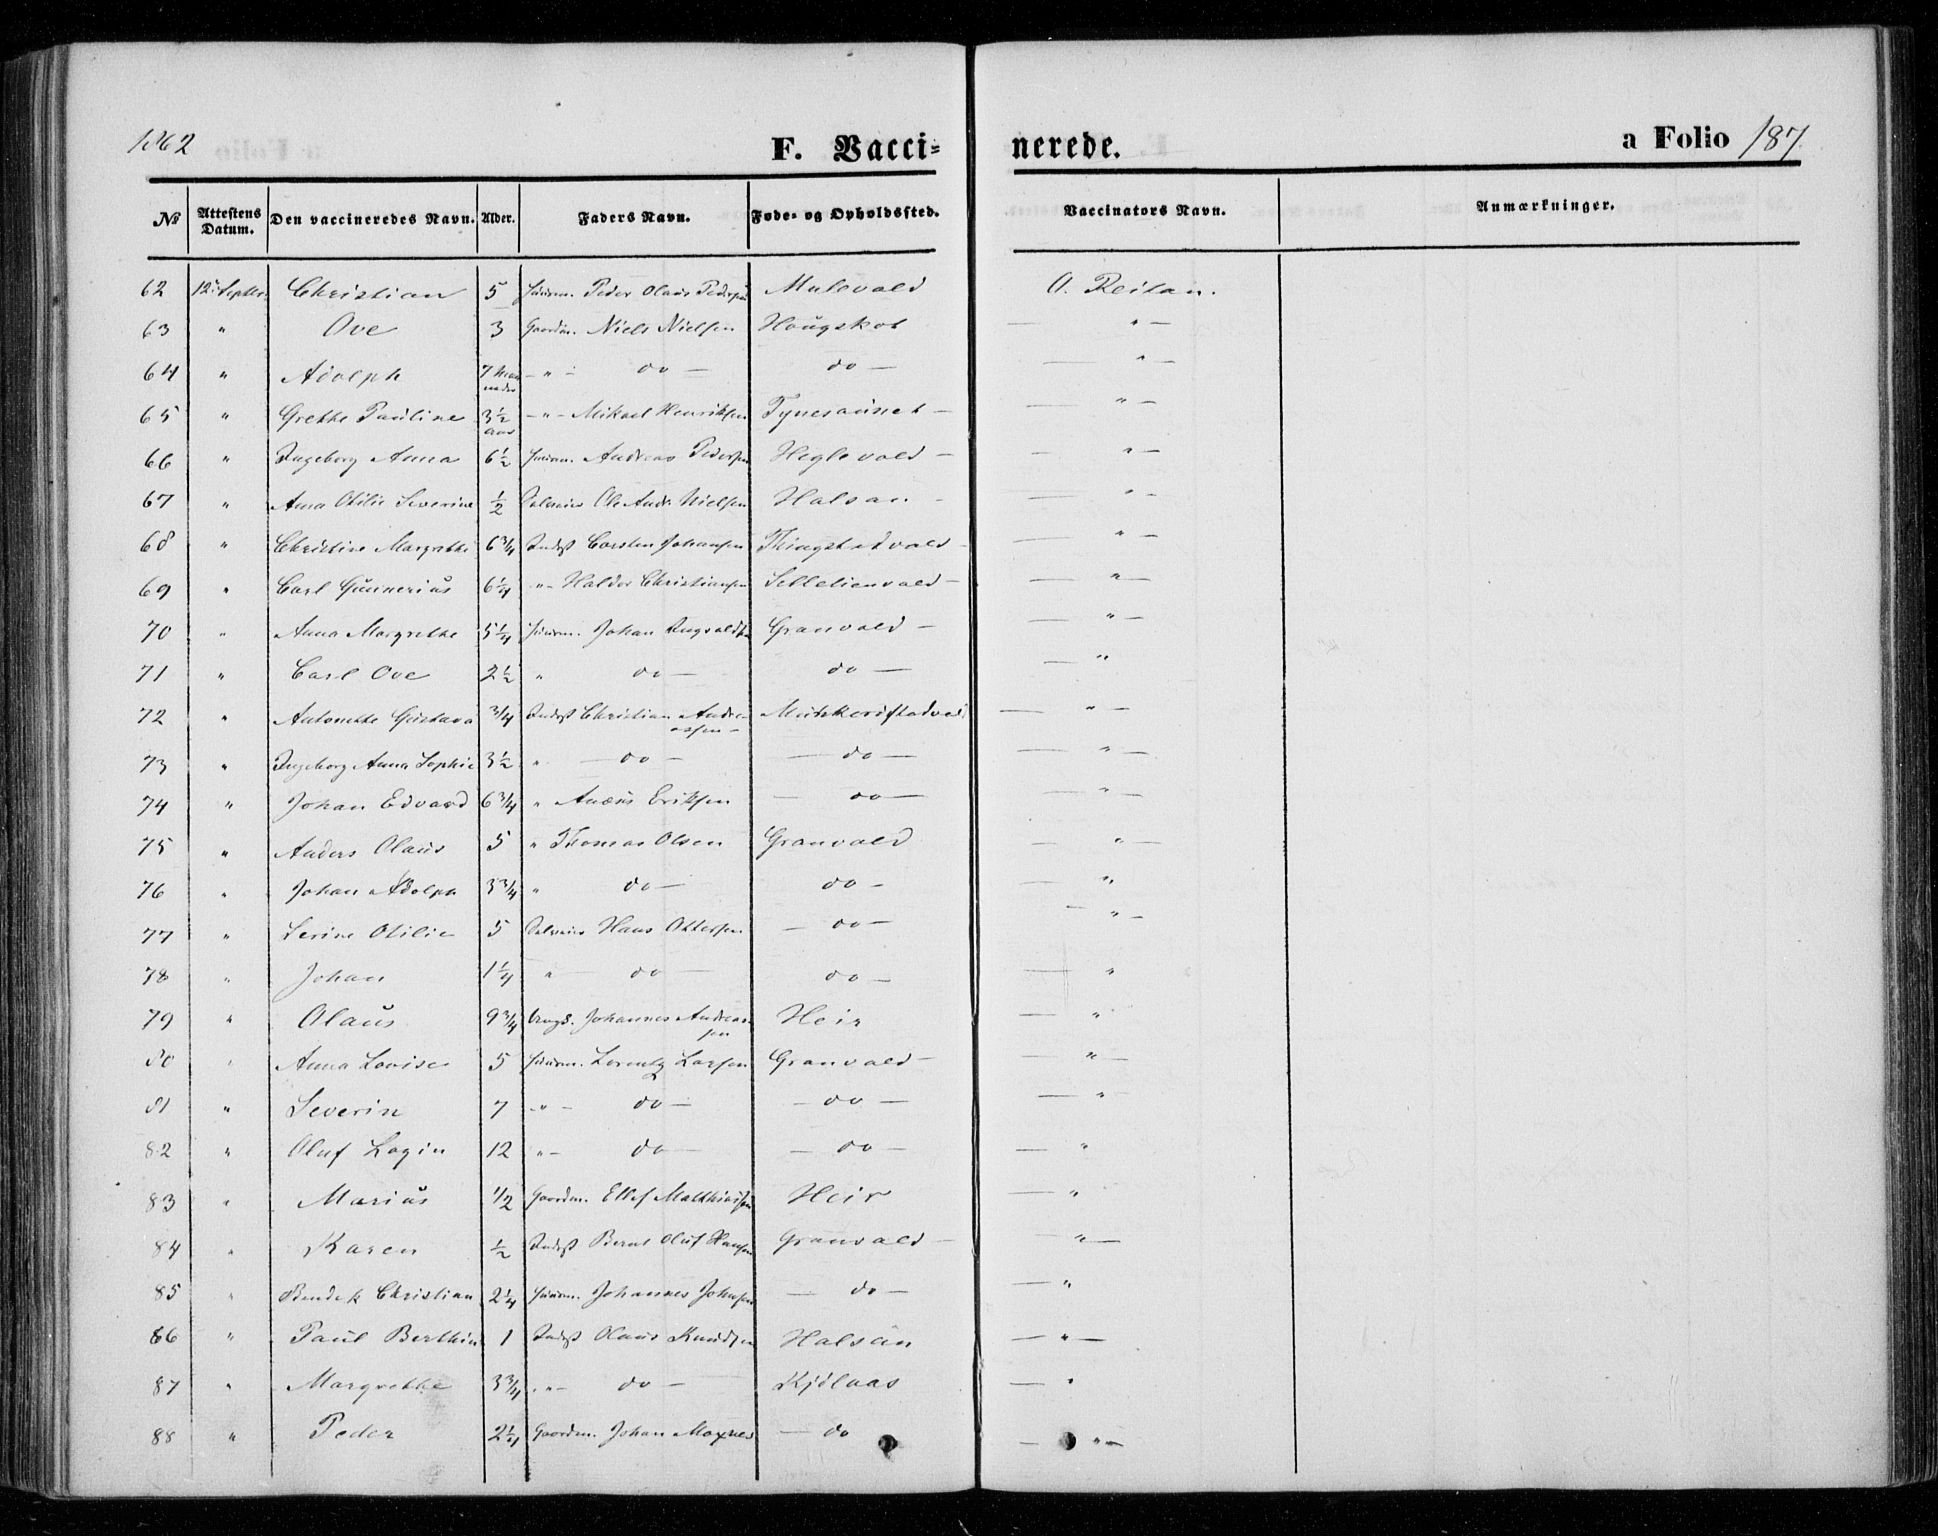 1862 F. Vacci= nerede. a Folio 187.
No Attestens Datum. Den vaccineredes Navn. Alder. Faders Navn. Føde- og Opholdssted. Vaccinators Navn. Anmærkninger.
62 12. Septbr. Christian 5 Huusm. Peder Olaus Pedersen Mulevald O. Reitan.
63 " Ove 3 Gaardm. Niels Nielsen Hougskot — " —
64 " Adolph 7 Maaneder — " — do — do — — " —
65 " Grethe Pauline 3½ aar — " — Mikael Henriksen Tynesaunet — — " —
66 " Ingeborg Anna 6½ Huusm. Andreas Pedersen Heglevald — — " —
67 " Anna Otilie Severine ½ Ole Andr. Nielsen Halsan — — " —
68 " Christine Margrethe 6¾ Inderst Carsten Johansen Thingstadvald — — " —
69 " Carl Gunnerius 6¼ " — Haldor Christiansen Selletienvald — — " —
70 " Anna Margrethe 5¼ Huusm. Johan Ingvaldsen Granvald — — " —
71 " Carl Ove 2½ " do — do — — "
72 " Antonette Gustava ¾ Inderst Christian Andreassen — — " —
73 " Ingeborg Anna Sophie 3½ " — do — — do — — " —
74 " Johan Edvard 6¾ " Anæus Eriksen — do — — " —
75 " Anders Olaus 5 " Thomas Olsen Granvald — " —
76 " Johan Adolph 3¾ " do — do — — "
77 " Serine Otilie 5 Hans Ottersen — do — — " —
78 " Johan 1¼ " do — do — — "
79 " Olaus 9¾ Johannes Andreassen Heir — "
80 " Anna Lovise 5 Huusm. Lorentz Larsen Granvald — — " —
81 " Severin 7 — " — do — — do — — "
82 " Oluf Lagin 12 " — do — — do — — "
83 " Marius ½ Gaardm. Ellef Matthiassen Heir — "
84 " Karen ½ Inderst Bernt Oluf Hansen Granvald — — " —
85 " Bendik Christian 2¼ Huusm. Johannes Johnsen — do — — "
86 " Paul Berthin 1 Inderst Olaus Knudsen Halsan — " —
87 " Margrethe 3¾ — " — do — Kjølaas — "
88 " Peder 2¼ Gaardm. Johan Magnes — do — " —